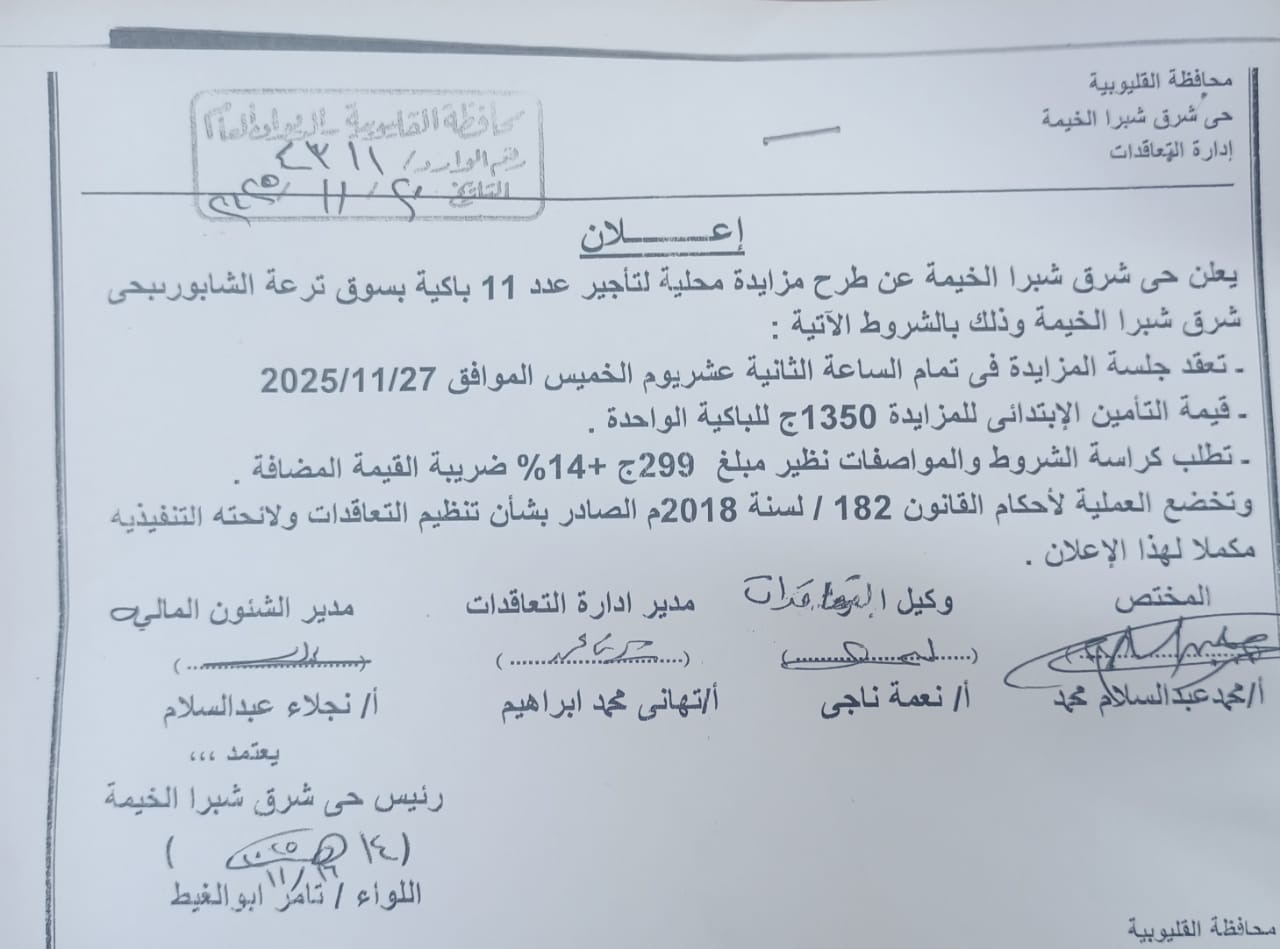 محافظة القليوبية
حى شرق شبرا الخيمة
إدارة التعاقدات
محافظة القليوبية - الديوان العام
رقم الوارد / ٤٣١١
التاريخ ٢٠ / ١١ / ٢٠٢٥
إعـــــــلان
يعلن حى شرق شبرا الخيمة عن طرح مزايدة محلية لتأجير عدد 11 باكية بسوق ترعة الشابورىبحى
شرق شبرا الخيمة وذلك بالشروط الآتية :
- تعقد جلسة المزايدة فى تمام الساعة الثانية عشريوم الخميس الموافق 2025/11/27
- قيمة التأمين الإبتدائى للمزايدة 1350ج للباكية الواحدة .
- تطلب كراسة الشروط والمواصفات نظير مبلغ 299ج +14% ضريبة القيمة المضافة .
وتخضع العملية لأحكام القانون 182 / لسنة 2018م الصادر بشأن تنظيم التعاقدات ولائحته التنفيذيه
مكملا لهذا الإعلان .
المختص وكيل التعاقدات مدير ادارة التعاقدات مدير الشئون الماليه
أ/محمدعبدالسلام محمد أ/ نعمة ناجى أ/تهانى محمد ابراهيم أ/ نجلاء عبدالسلام
يعتمد ،،،
رئيس حى شرق شبرا الخيمة
اللواء / تامر ابوالغيط
محافظة القليوبية